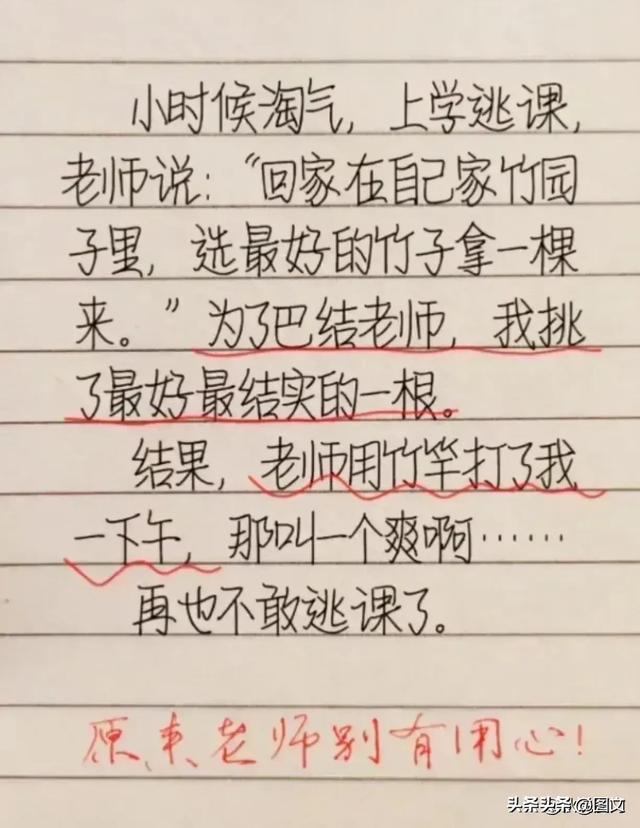 小时候淘气，上学逃课，
老师说：“回家在自己家竹园
子里，选最好的竹子拿一棵
来。”为了巴结老师，我挑
了最好最结实的一根。
结果，老师用竹竿打了我
一下午，那叫一个爽啊……
再也不敢逃课了。
原来老师别有用心！
头条头条 @图文